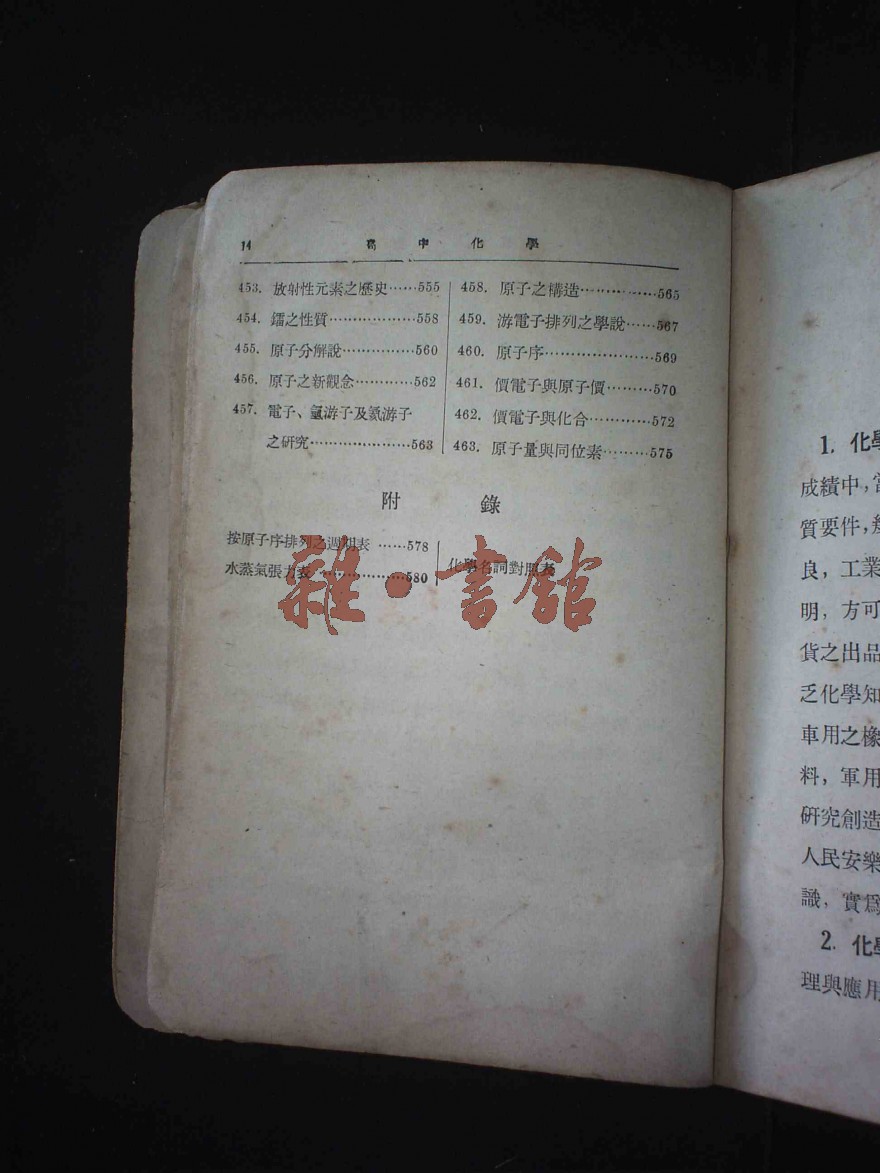 14 高中化學
453. 放射性元素之歷史……555
454. 鐳之性質………………558
455. 原子分解說……………560
456. 原子之新觀念…………562
457. 電子、氫游子及氦游子
之研究…………………563
458. 原子之構造……………565
459. 游電子排列之學說……567
460. 原子序…………………569
461. 價電子與原子價………570
462. 價電子與化合…………572
463. 原子量與同位素………575
附錄
按原子序排列之週期表……578
水蒸氣張力表………………580
化學名詞對照表
雜·書館
1. 化學
成績中,
質要件,
良,工業
明,方可
貨之出品
乏化學知
車用之橡
料,軍用
研究創造
人民安樂
識,實爲
2. 化學
理與應用